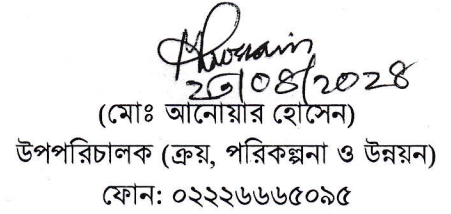 (মোঃ আনোয়ার হোসেন)
উপপরিচালক (ক্রয়, পরিকল্পনা ও উন্নয়ন)
ফোন: ০২২২৬৬৬৫০৯৫